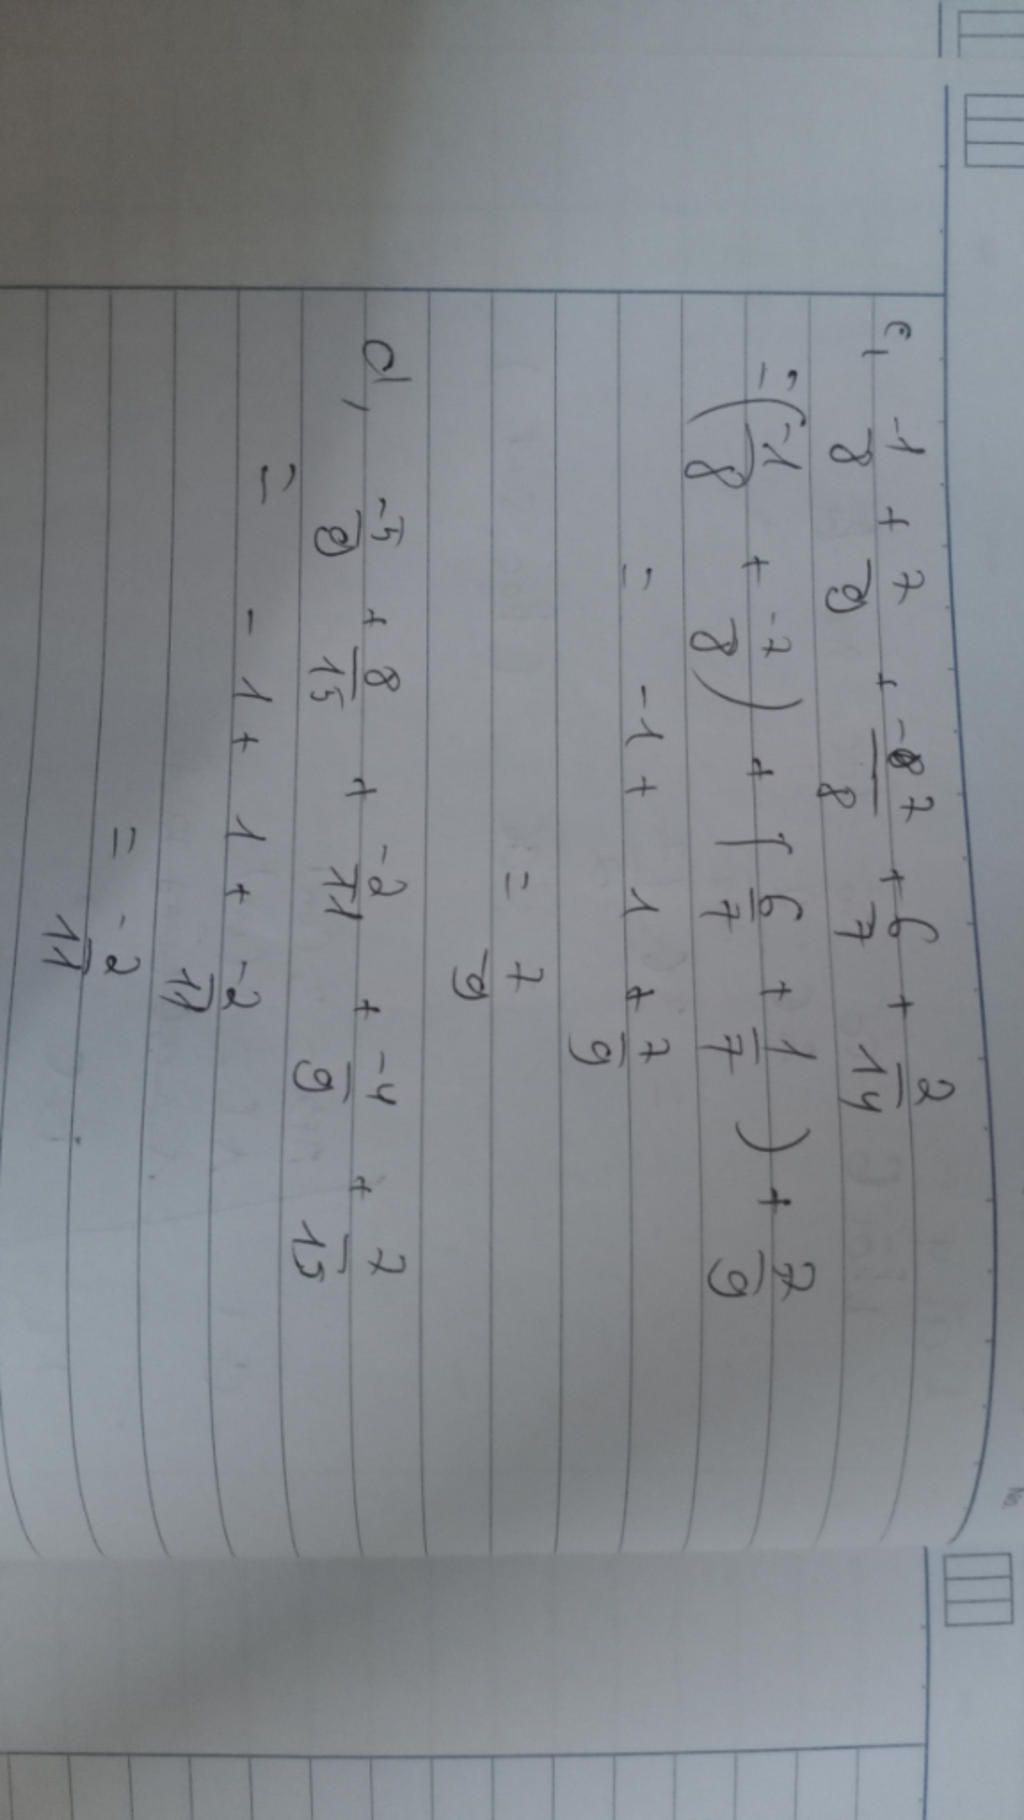 c, -1/8 + 7/9 + -7/8 + 6/7 + 2/14
= (-1/8 + -7/8) + (6/7 + 1/7) + 7/9
= -1 + 1 + 7/9
= 7/9
d, -5/9 + 8/15 + -2/11 + -4/9 + 7/15
= -1 + 1 + -2/11
= -2/11
No.